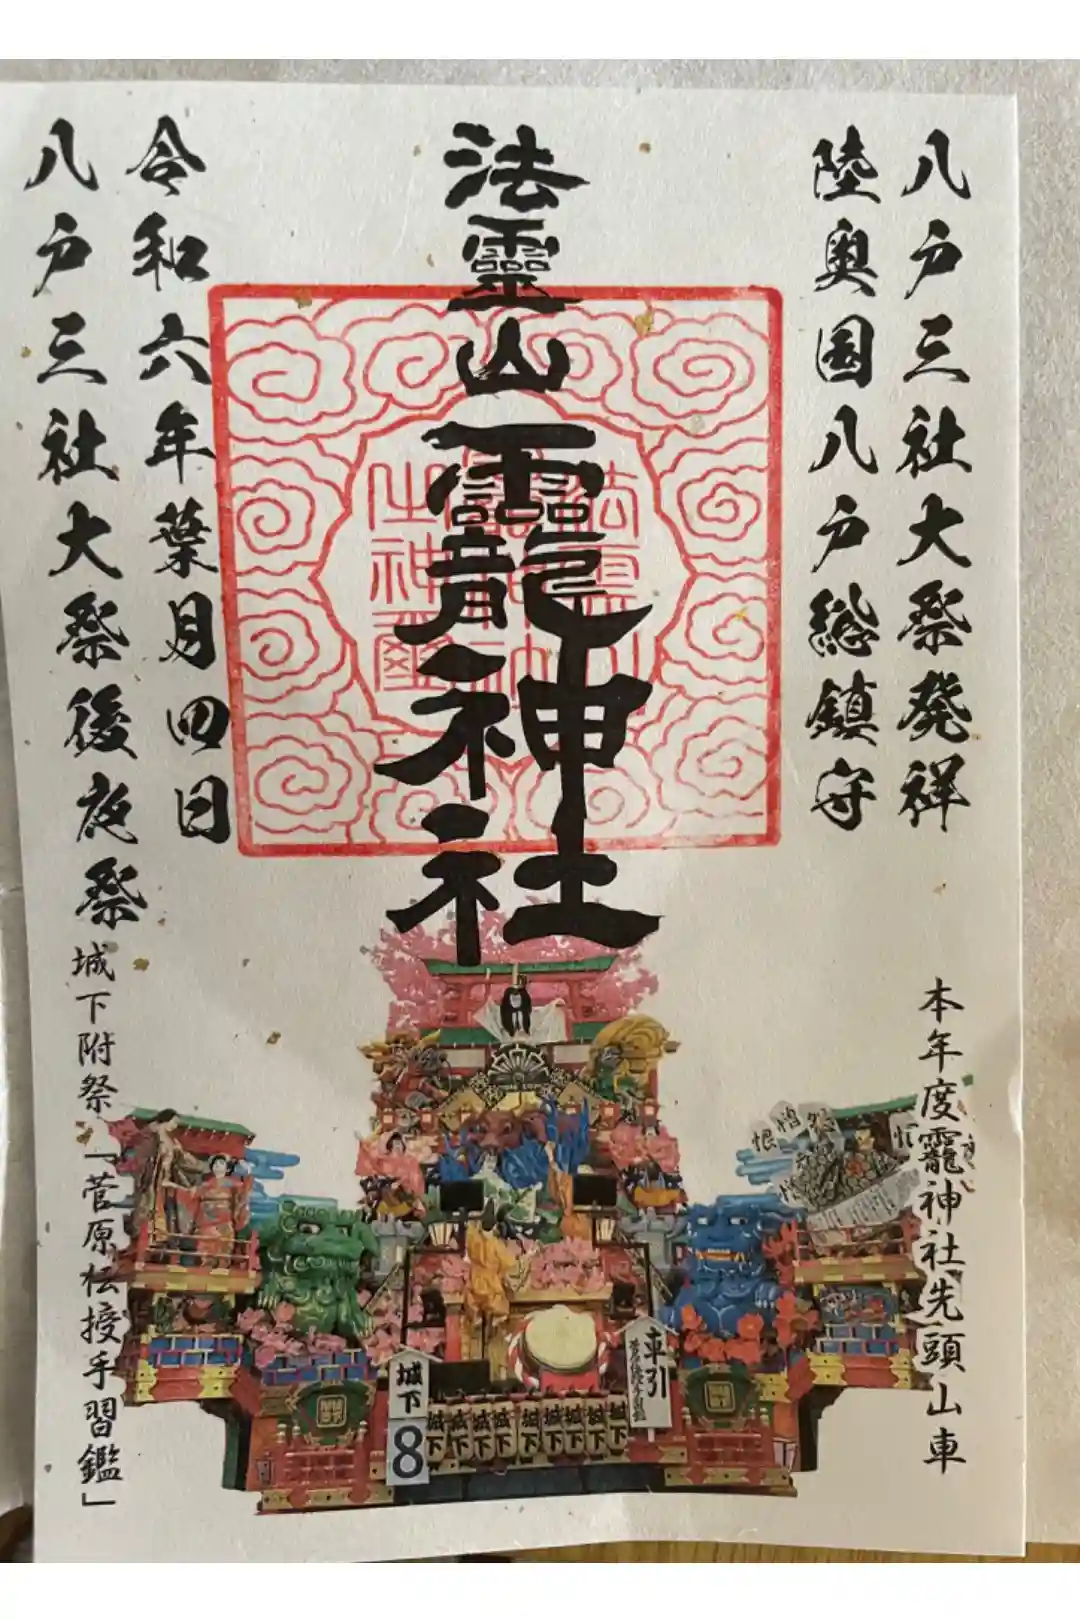 八戸三社大祭発祥
陸奥国八戸総鎮守
法霊山龗神社
令和六年葉月四日
八戸三社大祭後夜祭
城下附祭「菅原伝授手習鑑」
本年度龗神社先頭山車
恨
車引
城下
8
城下
城下
城下
城下
城下
城下
城下
城下
城下